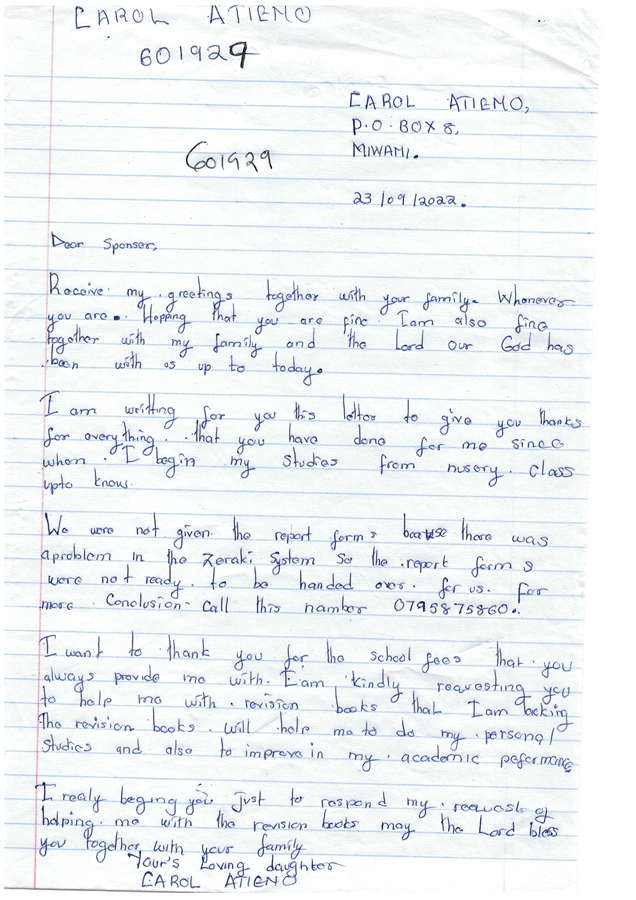 CAROL ATIENO
601929
CAROL ATIENO,
P.O. BOX 8,
MIWANI.
601929
23/09/2022.
Dear Sponser,
Receive my greetings together with your family. Whenever
you are. Hopping that you are fine. Iam also fine
together with my family and the Lord our God has
been with us up to today.
I am writting for you this letter to give you thanks
for everything that you have done for me since
when I begin my studies from nusery class
upto know.
We were not given the report forms because there was
aproblem in the Zeraki System so the report forms
were not ready to be handed over for us. For
more Conclusion call this namber 0795875860.
I want to thank you for the school fees that you
always provide me with. Iam kindly requesting you
to help me with revision books that Iam lacking
The revision books will help me to do my personal
studies and also to improve in my academic peformance
I realy beging you just to respond my requests of
helping me with the revision books may the Lord bless
you together with your family
Your's Loving daughter
CAROL ATIENO